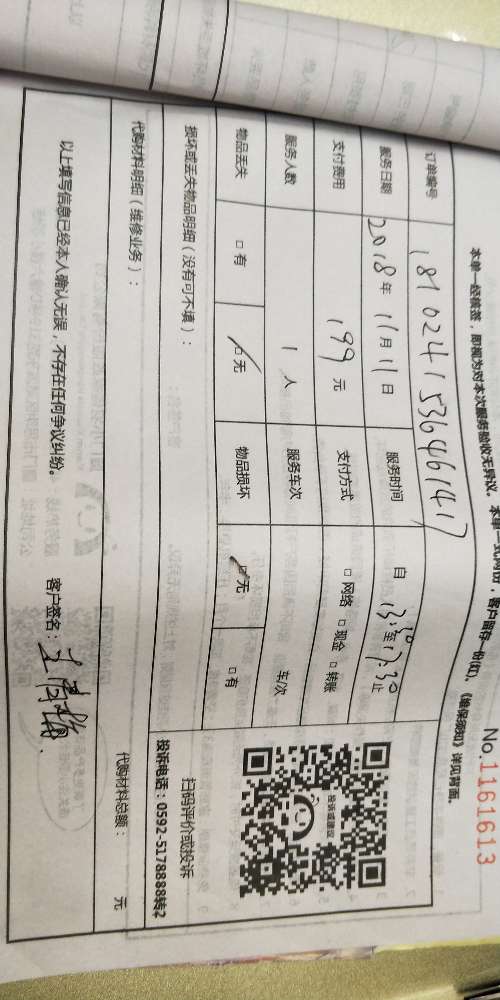 No.1161613
本单一经核签，即视为对本次服务验收无异议。本单一式两份，客户留存一份(红)，《维保须知》详见背面。
订单编号 1810241536461417
服务日期 2018年11月11日 服务时间 自13:30至17:30止
支付费用 199元 支付方式 □网络 □现金 □转账
服务人数 1人 服务车次 车次
物品丢失 □有 □无 物品损坏 □无 □有
损坏或丢失物品明细（没有可不填）：
投诉或建议
扫码评价或投诉
投诉电话：0592-5178888转2
代购材料明细（维修业务）：
代购材料总额： 元
以上填写信息已经本人确认无误，不存在任何争议纠纷。
客户签名：